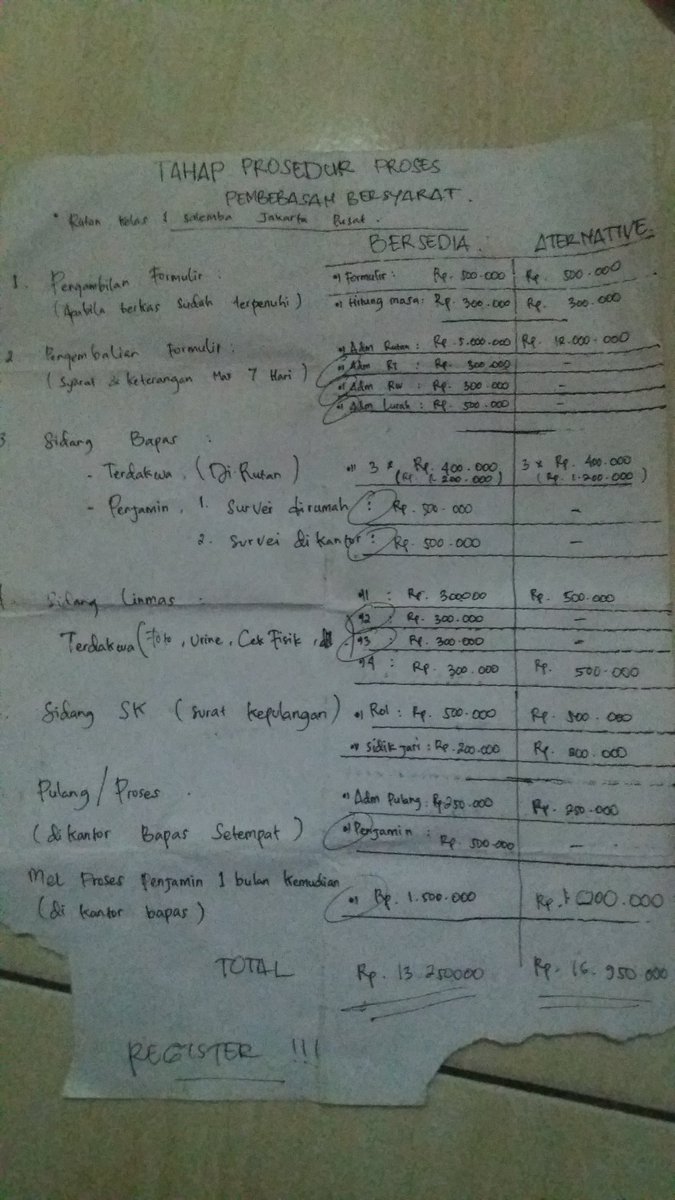 TAHAP PROSEDUR PROSES
PEMBEBASAN BERSYARAT.
* Rutan Kelas 1 Salemba Jakarta Pusat.
BERSEDIA : ATERNATIVE
1. Pengambilan Formulir : •) Formulir : Rp. 500.000 Rp. 500.000
(Apabila berkas sudah terpenuhi) •) Hitung masa : Rp. 300.000 Rp. 300.000
2 Pengembalian Formulir : •) Adm Rutan : Rp. 5.000.000 Rp. 12.000.000
(Syarat & keterangan Max 7 Hari) •) Adm RT : Rp. 300.000 -
•) Adm RW : Rp. 300.000 -
•) Adm Lurah : Rp. 500.000 -
3. Sidang Bapas :
- Terdakwa, (Di Rutan) •) 3 x Rp. 400.000 3 x Rp. 400.000
(Rp. 1.200.000) (Rp. 1.200.000)
- Penjamin, 1. Survei dirumah : Rp. 500.000 -
2. Survei di kantor : Rp. 500.000 -
Sidang Linmas : •)1 : Rp. 300000 Rp. 500.000
•)2 : Rp. 300.000 -
Terdakwa (Foto, Urine, Cek Fisik, •)3 : Rp. 300.000 -
•)4 : Rp. 300.000 Rp. 500.000
Sidang SK (surat kepulangan) •) Rol : Rp. 500.000 Rp. 500.000
•) Sidik jari : Rp. 200.000 Rp. 000
Pulang / Proses . •) Adm Pulang : Rp 250.000 Rp. 250.000
(di kantor Bapas Setempat) •) Penjamin : Rp. 500.000 -
Mel Proses Penjamin 1 bulan kemudian
(di kantor bapas) •) Rp. 1.500.000 Rp.
TOTAL Rp. 13.250000 Rp. 16.950.000
REGISTER !!!